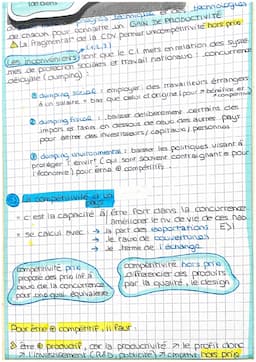 de chacun pour connaître un GAIN DE PRODUCTIVITÉ
⚠ La fragmentat° de la CDV permet uncompétitivité hors prix
Les inconvénients sont que le C.I mets en relation des systè-
mes de protection sociales et travail nationaux : concurrence
déloyale (dumping) :
① dumping social : employer des travailleurs étrangers
à un salaire + bas que celui d'origine (pour ↗ bénéfice et compétitivité)
② dumping fiscal : baisser délibérement certains des
impôts et taxes en dessous de ceux des autres pays
pour attirer des investisseurs / capitaux / personnes
③ dumping environmental : baisser les politiques visant à
protéger l'envir° (qui sont souvent contraignante pour
l'économie) pour être ⊕ compétitif
La compétitivité et la
• c'est la capacité à être fort dans la concurrence
améliorer le nv de vie de ces hab
• se calcul avec → la part des exportations
→ le taux de couverture
→ le terme de l'échange
compétitivité prix
propose des prix inf à
ceux de la concurrence
pour une qual. équivalente
compétitivité hors prix
différencier des produits
par la qualité, le design
Pour être ⊕ compétitif, il faut :
→ être ⊕ productif, car la productivité ↗ le profit donc
↗ l'investissement (R&D, publicité) ↗ compétit hors prix